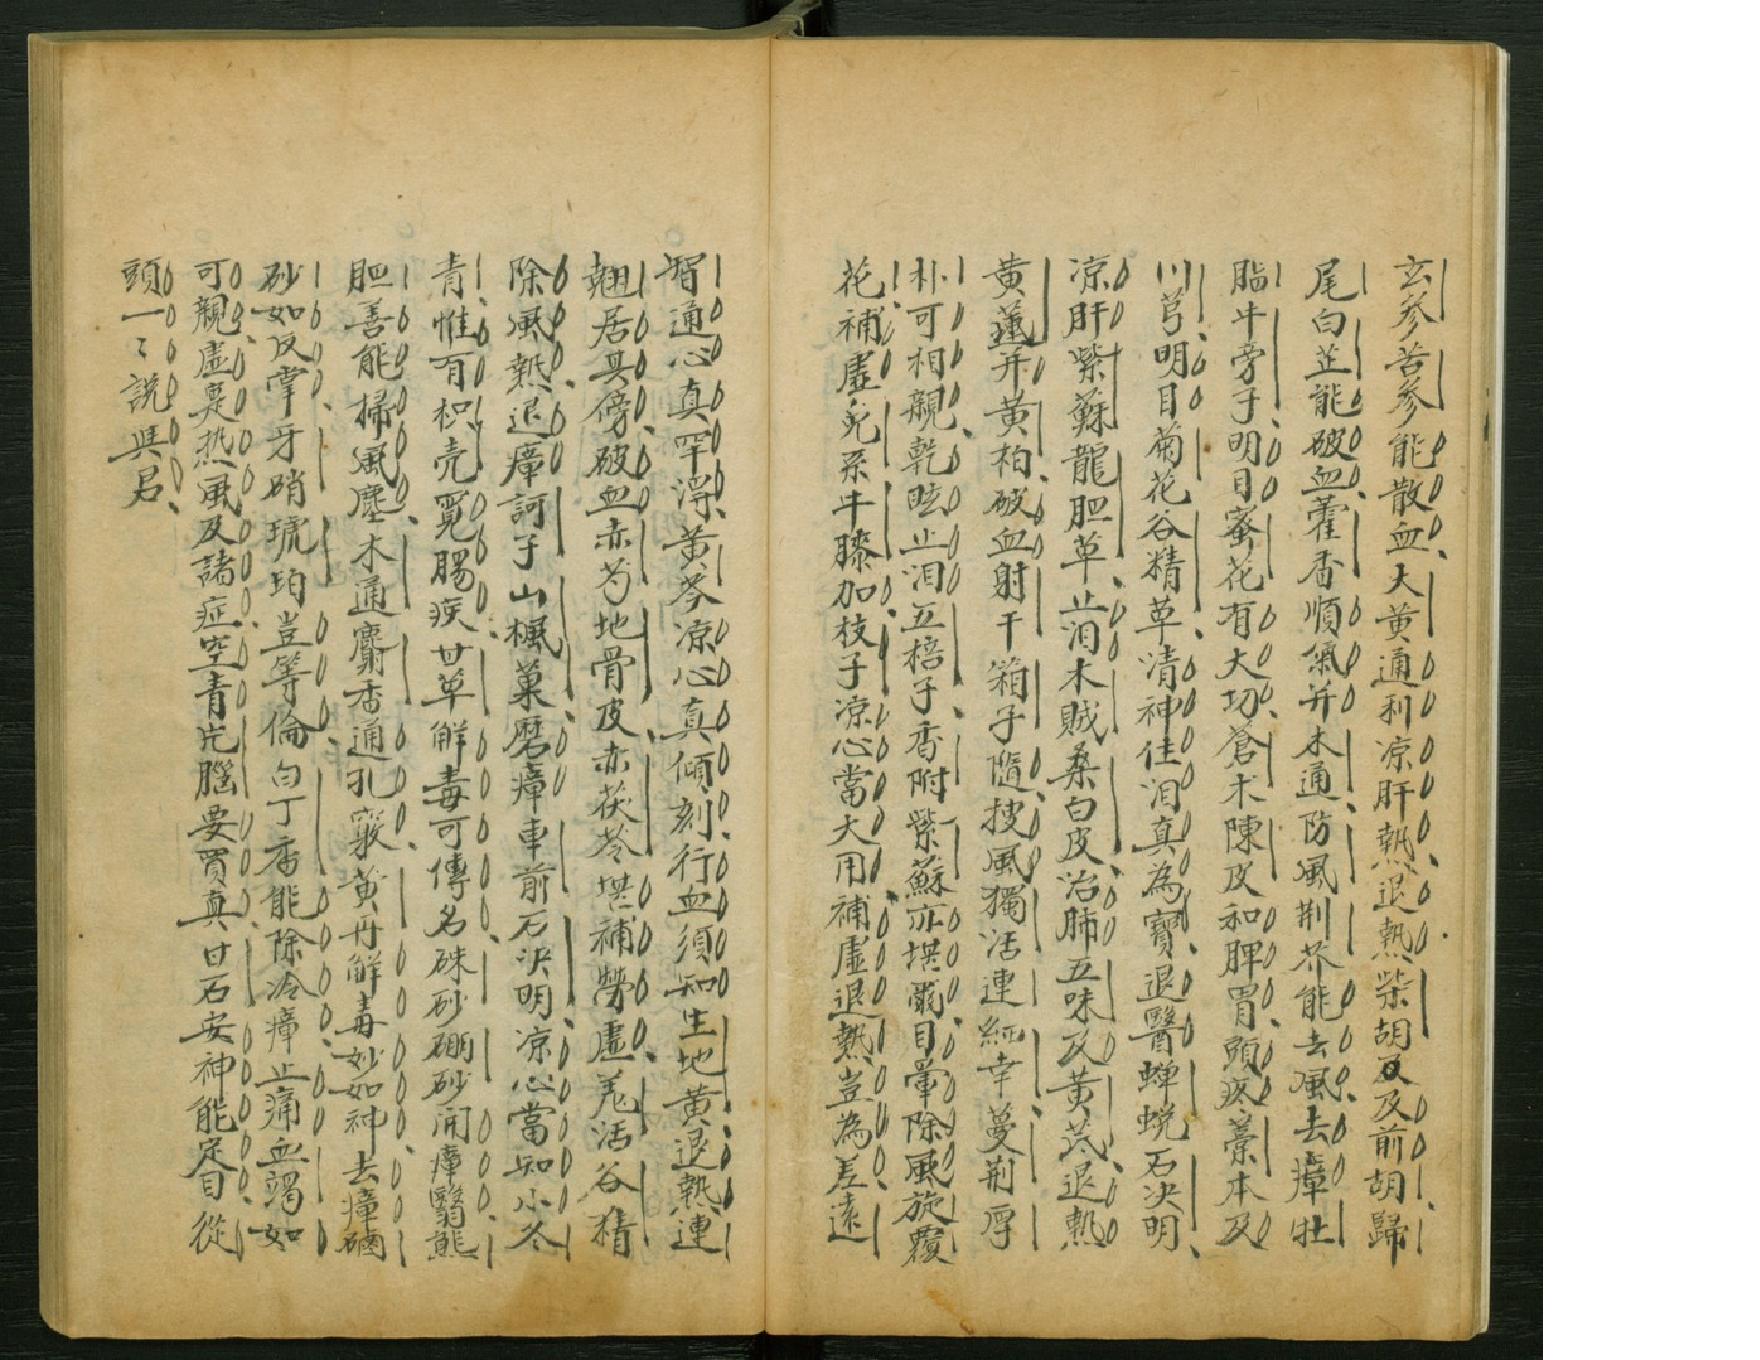 玄參苦參能散血大黃通利凉肝熱退熱柴胡及及前胡歸
尾白芷能破血藿香順氣并木通防風荆芥能去風去瘴牡
脂牛旁子明目蜜花有大功蒼术陳皮和脾胃頭疼藁本及
川芎明目菊花谷精草清神住泪真為寶退醫蟬蛻石决明
凉肝紫蘇龍胆草止泪木賊桑白皮治肺五味及黃芪退熱
黃蓮并黃柏破血射干箱子隨搜風獨活連細辛蔓荆厚
朴可相親乾眩止泪五棓子香附紫蘇亦堪爾目暈除風旋覆
花補虛兔系牛膝加枝子凉心當大用補虛退熱豈為差遠
智通心真罕淂黃芩凉心真傾刻行血須知生地黃退熱連
翹居其傍破血赤芍地骨皮赤茯苓堪補勞虛羌活谷精
除風熱退瘴訶子山楓菓磨瘴車前石决明凉心當知小冬
青惟有枳壳寬腸疾甘草解毒可傳名硃砂硼砂開瘴翳熊
胆善能掃風塵木通麝香通孔竅黃丹解毒妙如神去瘴硇
砂如反掌牙硝琥珀豈等倫白丁香能除冷瘴止痛血竭如
可親虛寔热風及諸症空青片腦要買真甘石安神能定目從
頭一〻說與君